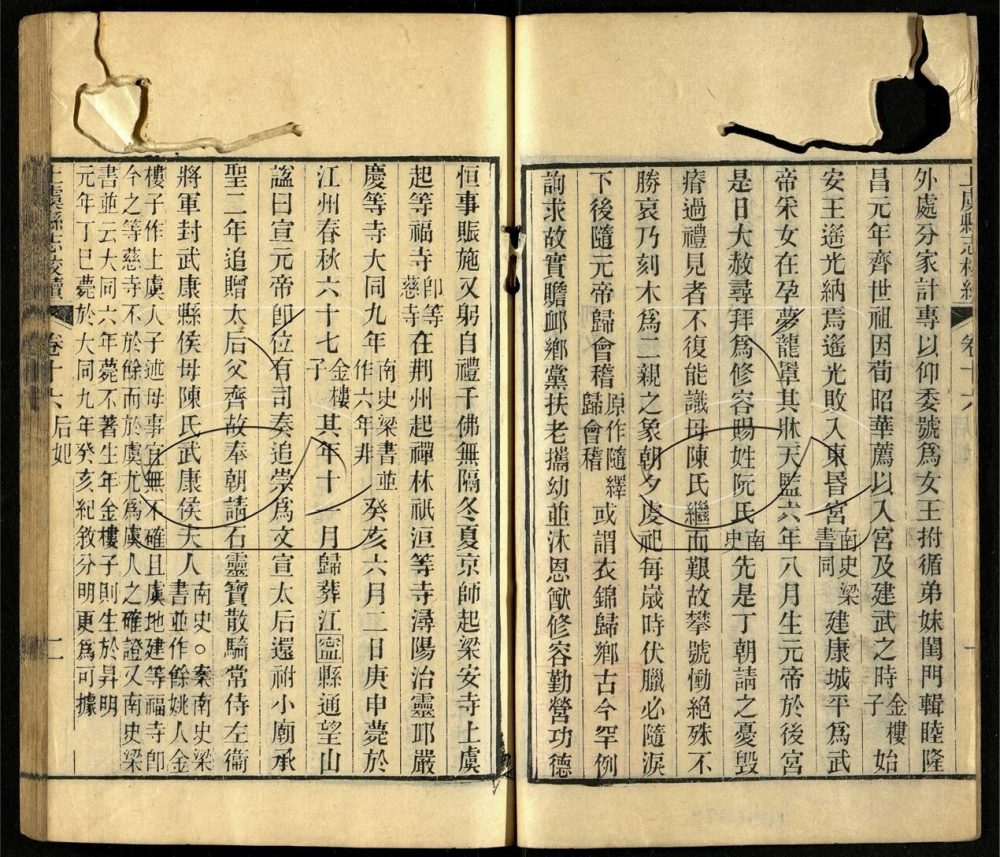 外處分家計專以仰委號爲女王拊循弟妹閨門輯睦隆
昌元年齊世祖因荀昭華薦以入宮及建武之時金樓子始
安王遙光納焉遙光敗入東昏宮南史梁書同建康城平爲武
帝采女在孕夢龍罩其牀天監六年八月生元帝於後宮
是日大赦尋拜爲修容賜姓阮氏南史先是丁朝請之憂毀
瘠過禮見者不復能識母陳氏繼而艱故攀號慟絕殊不
勝哀乃刻木爲二親之象朝夕虔祀每歲時伏臘必隨淚
下後隨元帝歸會稽原作隨繹歸會稽或謂衣錦歸鄉古今罕例
詢求故實贍卹鄉黨扶老攜幼並沐恩猷修容勤營功德
上虞縣志校續
卷十六
后妃
二
恒事賑施又躬自禮千佛無隔冬夏京師起梁安寺上虞
起等福寺卽等慈寺在荆州起禪林祇洹等寺潯陽治靈邱嚴
慶等寺大同九年南史梁書並作六年非癸亥六月二日庚申薨於
江州春秋六十七金樓子其年十一月歸葬江寍縣通望山
諡曰宣元帝卽位有司奏追崇爲文宣太后還祔小廟承
聖二年追贈太后父齊故奉朝請石靈寶散騎常侍左衞
將軍封武康縣侯母陳氏武康侯夫人南史○案南史梁書並作餘姚人金
樓子作上虞人子述母事宜無不確且虞地建等福寺卽
今之等慈寺不於餘而於虞尤爲虞人之確證又南史梁
書並云大同六年薨不著生年金樓子則生於昇明
元年丁巳薨於大同九年癸亥紀敘分明更爲可據